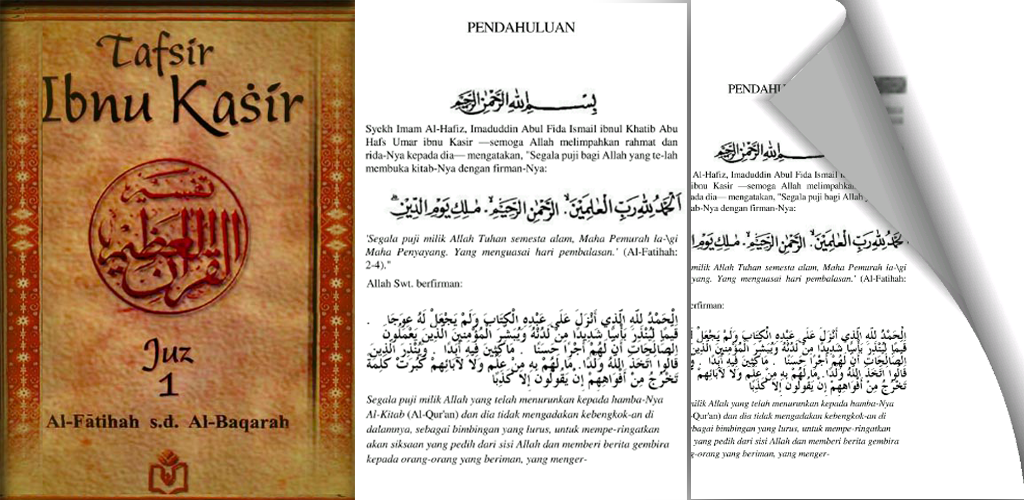 Tafsir
Ibnu Kaṡīr
تفسير
القرآن العظيم
Juz
1
Al-Fātihah s.d. Al-Baqarah
PENDAHULUAN
بِسْــــمِ اللهِ الرَّحْمٰنِ الرَّحِيْمِ
Syekh Imam Al-Hafiz, Imaduddin Abul Fida Ismail ibnul Khatib Abu
Hafs Umar ibnu Kasir —semoga Allah melimpahkan rahmat dan
rida-Nya kepada dia— mengatakan, "Segala puji bagi Allah yang te-lah
membuka kitab-Nya dengan firman-Nya:
اَلْحَمْدُ لِلّٰهِ رَبِّ الْعٰلَمِيْنَۙ. الرَّحْمٰنِ الرَّحِيْمِۙ. مٰلِكِ يَوْمِ الدِّيْنِۗ
'Segala puji milik Allah Tuhan semesta alam, Maha Pemurah la-\gi
Maha Penyayang. Yang menguasai hari pembalasan.' (Al-Fatihah:
2-4)."
Allah Swt. berfirman:
اِلْحَمْدُ لِلّهِ الَّذِي أَنْزَلَ عَلَى عَبْدِهِ الْكِتَابَ وَلَمْ يَجْعَلْ لَهُ عِوَجًا .
قَيِّمًا لِيُنْذِرَ بَأْسًا شَدِيدًا مِنْ لَدُنْهُ وَيُبَشِّرَ الْمُؤْمِنِينَ الَّذِينَ يَعْمَلُونَ
الصَّالِحَاتِ أَنَّ لَهُمْ أَجْرًا حَسَنًا . مَاكِثِينَ فِيهِ أَبَدًا . وَيُنْذِرَ الَّذِينَ
قَالُوا اتَّخَذَ اللَّهُ وَلَدًا. مَا لَهُمْ بِهِ مِنْ عِلْمٍ وَلَا لِآبَائِهِمْ كَبُرَتْ كَلِمَةً
تَخْرُجُ مِنْ أَفْوَاهِهِمْ إِنْ يَقُولُونَ إِلَّا كَذِبًا
Segala puji milik Allah yang telah menurunkan kepada hamba-Nya
Al-Kitab (Al-Qur'an) dan dia tidak mengadakan kebengkok-an di
dalamnya, sebagai bimbingan yang lurus, untuk mempe-ringatkan
akan siksaan yang pedih dari sisi Allah dan memberi berita gembira
kepada orang-orang yang beriman, yang menger-
PENDAHU
بِسْــــمِ اللهِ الرَّحْمٰنِ الرَّحِيْمِ
Al-Hafiz, Imaduddin Abul Fida Ismail
ibnu Kasir —semoga Allah melimpahkan
pada dia— mengatakan, "Segala puji bagi Allah
ab-Nya dengan firman-Nya:
حَمْدُ لِلّٰهِ رَبِّ الْعٰلَمِيْنَۙ. الرَّحْمٰنِ الرَّحِيْمِۙ. مٰلِكِ يَوْمِ
milik Allah Tuhan semesta alam, Maha Pemurah la-\gi
yang. Yang menguasai hari pembalasan.' (Al-Fatihah:
erfirman:
اِلْحَمْدُ لِلّهِ الَّذِي أَنْزَلَ عَلَى عَبْدِهِ الْكِتَابَ وَلَمْ يَجْعَلْ
قَيِّمًا لِيُنْذِرَ بَأْسًا شَدِيدًا مِنْ لَدُنْهُ وَيُبَشِّرَ الْمُؤْمِنِينَ
الصَّالِحَاتِ أَنَّ لَهُمْ أَجْرًا حَسَنًا . مَاكِثِينَ فِيهِ أَبَدًا .
قَالُوا اتَّخَذَ اللَّهُ وَلَدًا. مَا لَهُمْ بِهِ مِنْ عِلْمٍ وَلَا لِآبَائِهِمْ
تَخْرُجُ مِنْ أَفْوَاهِهِمْ إِنْ يَقُولُونَ إِلَّا كَذِبًا
milik Allah yang telah menurunkan kepada hamba-Nya
(Al-Qur'an) dan dia tidak mengadakan kebengkok-an di
sebagai bimbingan yang lurus, untuk mempe-ringatkan
yang pedih dari sisi Allah dan memberi berita gembira
g-orang yang beriman, yang menger-